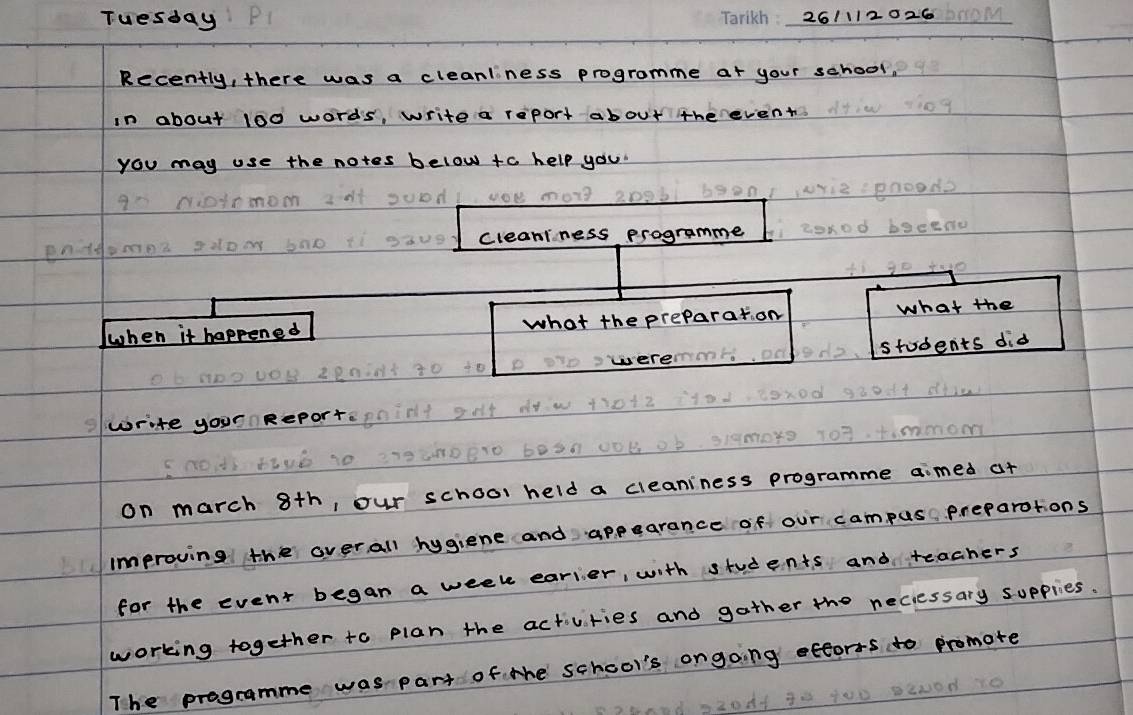 Tuesday P1
Tarikh : 26/1/2026
Recently, there was a cleanliness programme at your school,
in about 100 words, write a report about the event
you may use the notes below to help you.
cleaniness programme
when it happened
what the preparation
were
what the
students did
write your Report.
on march 8th, our school held a cleaniness programme aimed at
improving the overall hygiene and appearance of our campus. preparations
for the event began a week earlier, with students and teachers
working together to plan the activities and gather the necessary supplies.
The programme was part of the school's ongoing efforts to promote